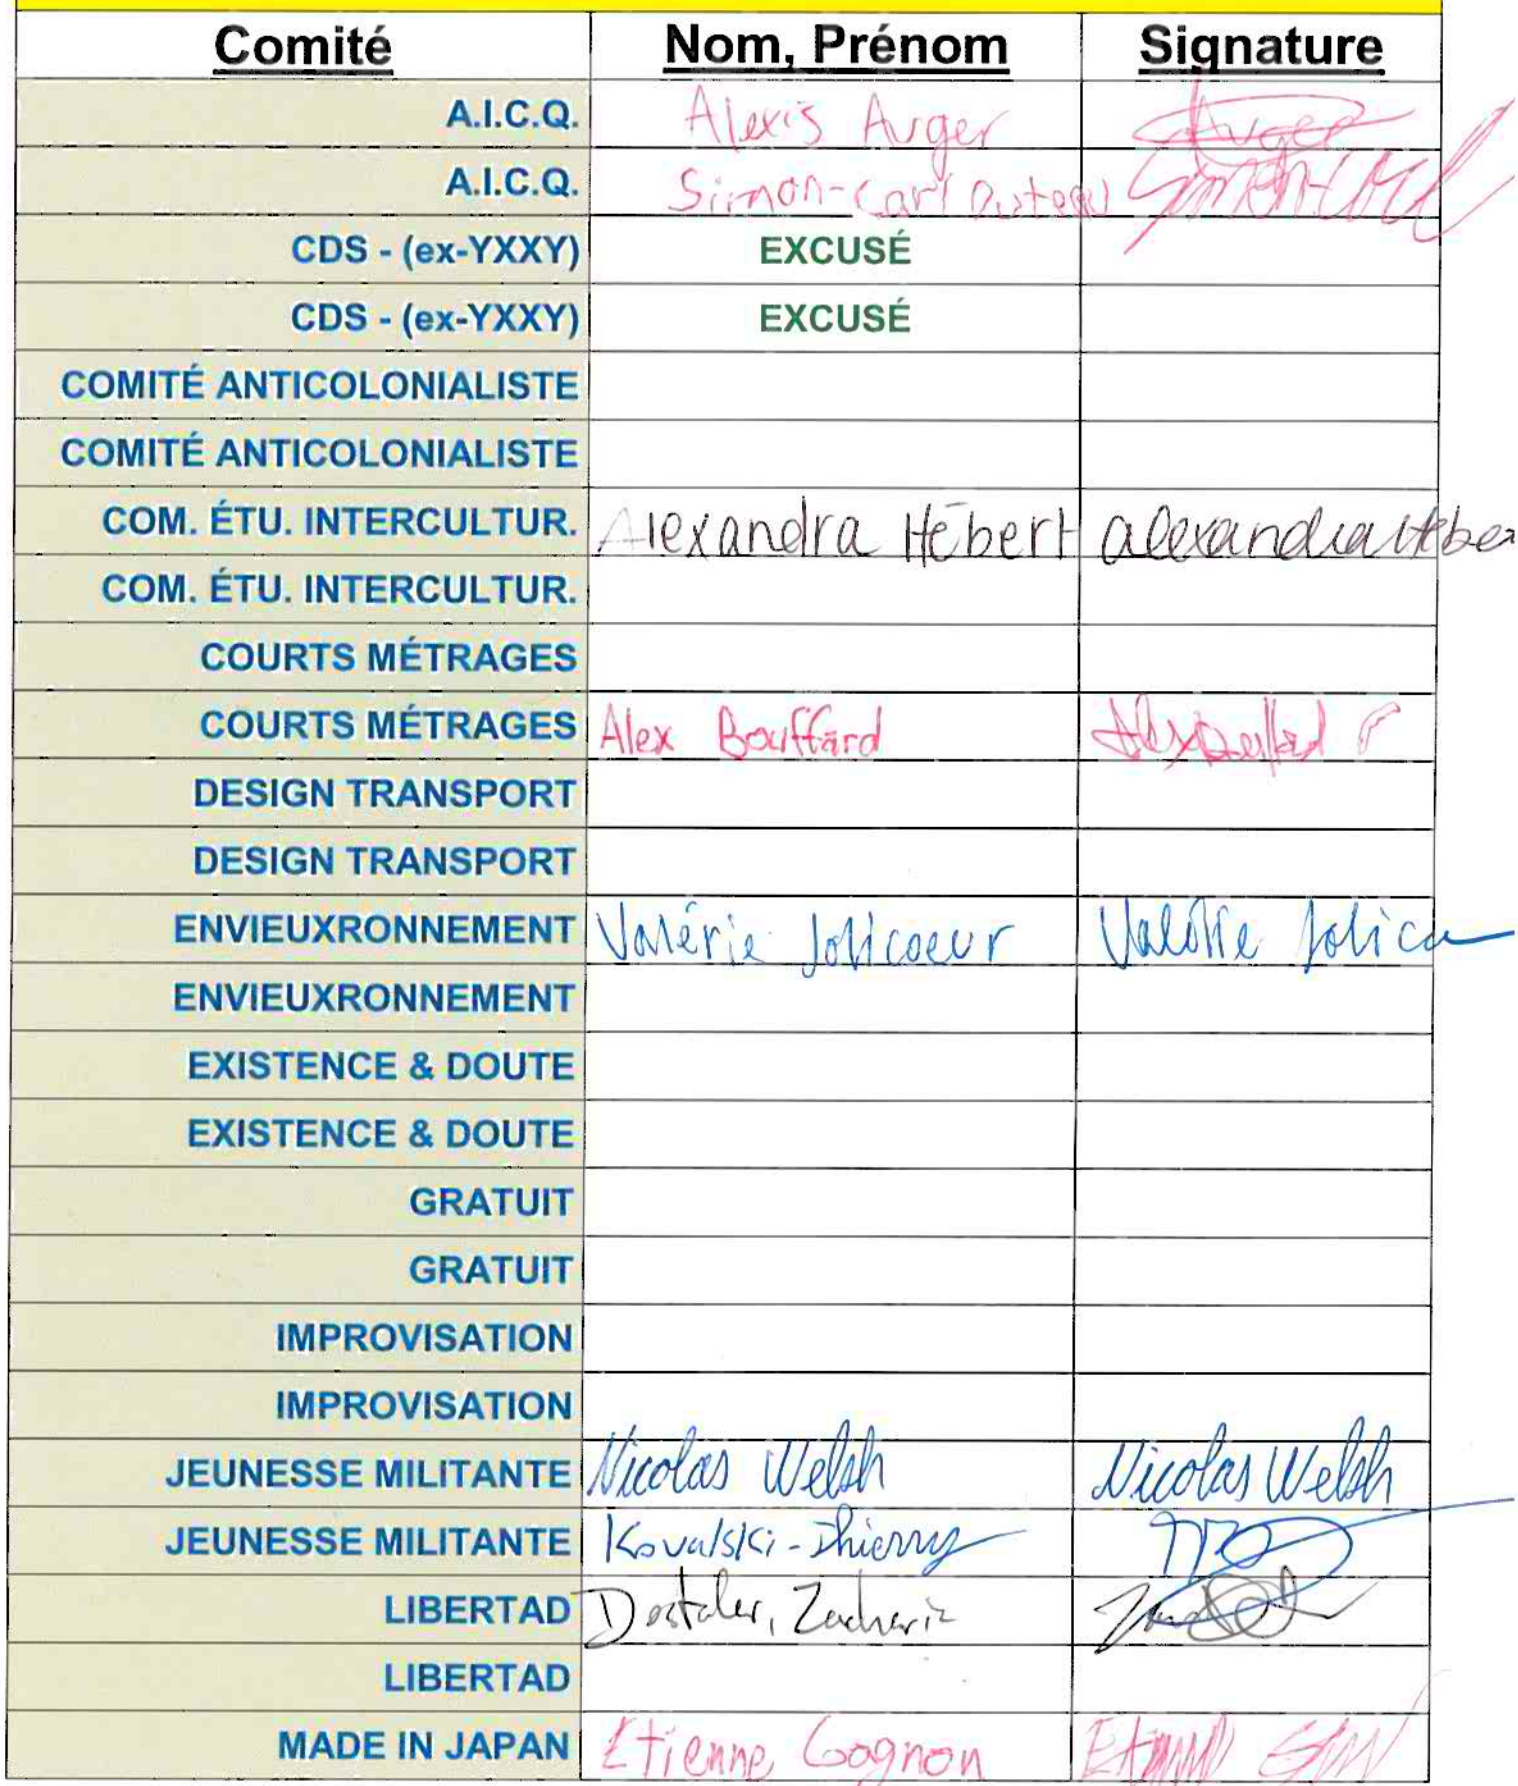 Comité Nom, Prénom Signature
A.I.C.Q. Alexis Auger Auger
A.I.C.Q. Simon-Carl Duteau Simon-Carl
CDS - (ex-YXXY) EXCUSÉ
CDS - (ex-YXXY) EXCUSÉ
COMITÉ ANTICOLONIALISTE
COMITÉ ANTICOLONIALISTE
COM. ÉTU. INTERCULTUR. Alexandra Hébert alexandra Heber
COM. ÉTU. INTERCULTUR.
COURTS MÉTRAGES
COURTS MÉTRAGES Alex Bouffard
DESIGN TRANSPORT
DESIGN TRANSPORT
ENVIEUXRONNEMENT Valérie Jolicoeur Valérie Jolicoe
ENVIEUXRONNEMENT
EXISTENCE & DOUTE
EXISTENCE & DOUTE
GRATUIT
GRATUIT
IMPROVISATION
IMPROVISATION
JEUNESSE MILITANTE Nicolas Welsh Nicolas Welsh
JEUNESSE MILITANTE Kovalski-Thierry
LIBERTAD Dostaler, Zacharie
LIBERTAD
MADE IN JAPAN Etienne Gagnon